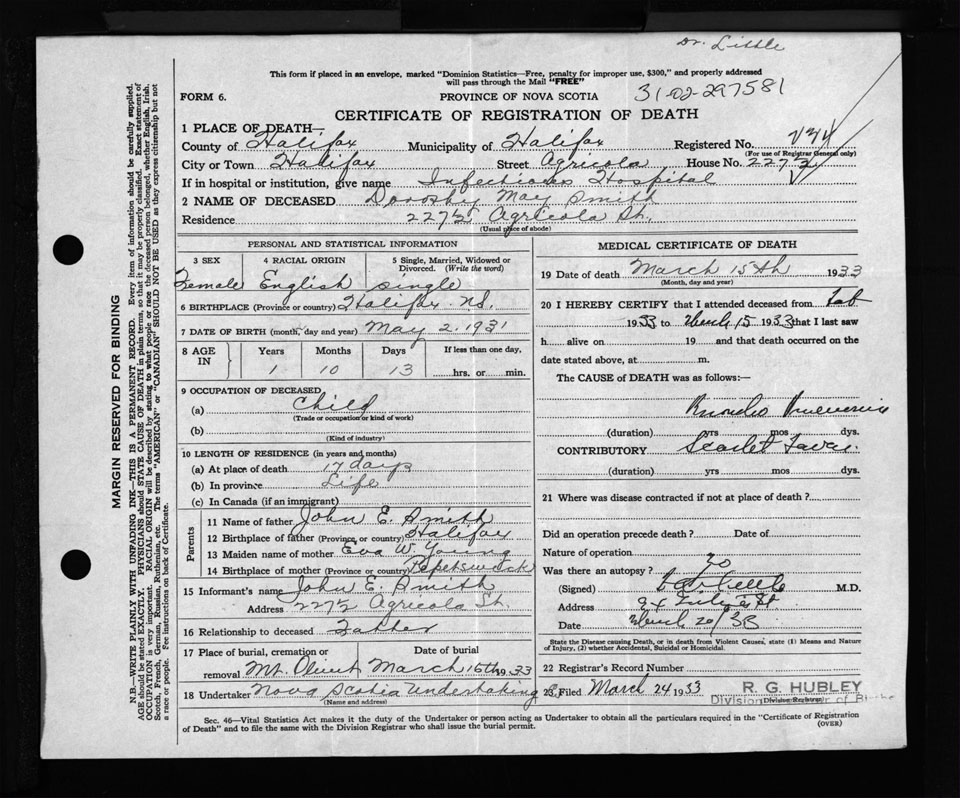 Dr. Little
This form if placed in an envelope, marked "Dominion Statistics—Free, penalty for improper use, $300," and properly addressed
will pass through the Mail "FREE"
FORM 6.
PROVINCE OF NOVA SCOTIA
31-02-297581
CERTIFICATE OF REGISTRATION OF DEATH
1 PLACE OF DEATH—
County of Halifax Municipality of Halifax Registered No.
(For use of Registrar General only)
City or Town Halifax Street Agricola House No. 227½
If in hospital or institution, give name Infectious Hospital
2 NAME OF DECEASED Dorothy May Smith
Residence 227½ Agricola St.
(Usual place of abode)
PERSONAL AND STATISTICAL INFORMATION
3 SEX 4 RACIAL ORIGIN 5 Single, Married, Widowed or
Divorced. (Write the word)
Female English single
6 BIRTHPLACE (Province or country) Halifax N.S.
7 DATE OF BIRTH (month, day and year) May 2, 1931
8 AGE IN Years Months Days If less than one day,
1 10 13 hrs. or min.
9 OCCUPATION OF DECEASED
(a) Child
(Trade or occupation or kind of work)
(b)
(Kind of industry)
10 LENGTH OF RESIDENCE (in years and months)
(a) At place of death 17 days
(b) In province Life
(c) In Canada (if an immigrant)
Parents
11 Name of father John E. Smith
12 Birthplace of father (Province or country) Halifax
13 Maiden name of mother Eva W. Young
14 Birthplace of mother (Province or country)
15 Informant's name John E. Smith
Address 227½ Agricola St.
16 Relationship to deceased Father
17 Place of burial, cremation or Date of burial
removal Mt. Olivet March 16th 1933
18 Undertaker Nova Scotia Undertaking Co.
(Name and address)
MEDICAL CERTIFICATE OF DEATH
19 Date of death March 15th 1933
(Month, day and year)
20 I HEREBY CERTIFY that I attended deceased from Feb
1933 to March 15 1933 that I last saw
h alive on 19 and that death occurred on the
date stated above, at m.
The CAUSE of DEATH was as follows:—
Broncho Pneumonia
(duration) yrs mos dys.
CONTRIBUTORY Scarlet Fever
(duration) yrs mos dys.
21 Where was disease contracted if not at place of death?
Did an operation precede death? Date of
Nature of operation
Was there an autopsy? No
(Signed) M.D.
Address
Date March 20/33
State the Disease causing Death, or in death from Violent Causes, state (1) Means and Nature
of Injury, (2) whether Accidental, Suicidal or Homicidal.
22 Registrar's Record Number
23 Filed March 24 1933 R. G. HUBLEY
(Division Registrar)
Sec. 46—Vital Statistics Act makes it the duty of the Undertaker or person acting as Undertaker to obtain all the particulars required in the "Certificate of Registration
of Death" and to file the same with the Division Registrar who shall issue the burial permit.
(OVER)
MARGIN RESERVED FOR BINDING
N.B.—WRITE PLAINLY WITH UNFADING INK—THIS IS A PERMANENT RECORD. Every item of information should be carefully supplied.
AGE should be stated EXACTLY. PHYSICIANS should STATE CAUSE OF DEATH in plain terms, so that it may be properly classified. Exact statement of
OCCUPATION is very important. RACIAL ORIGIN will be described by stating to what people or race the deceased person belonged, whether English, Irish,
Scotch, French, German, Russian, Ruthenian, etc. The terms "AMERICAN" or "CANADIAN" SHOULD NOT BE USED as they express citizenship but not
a race or people. Fee instructions on back of Certificate.